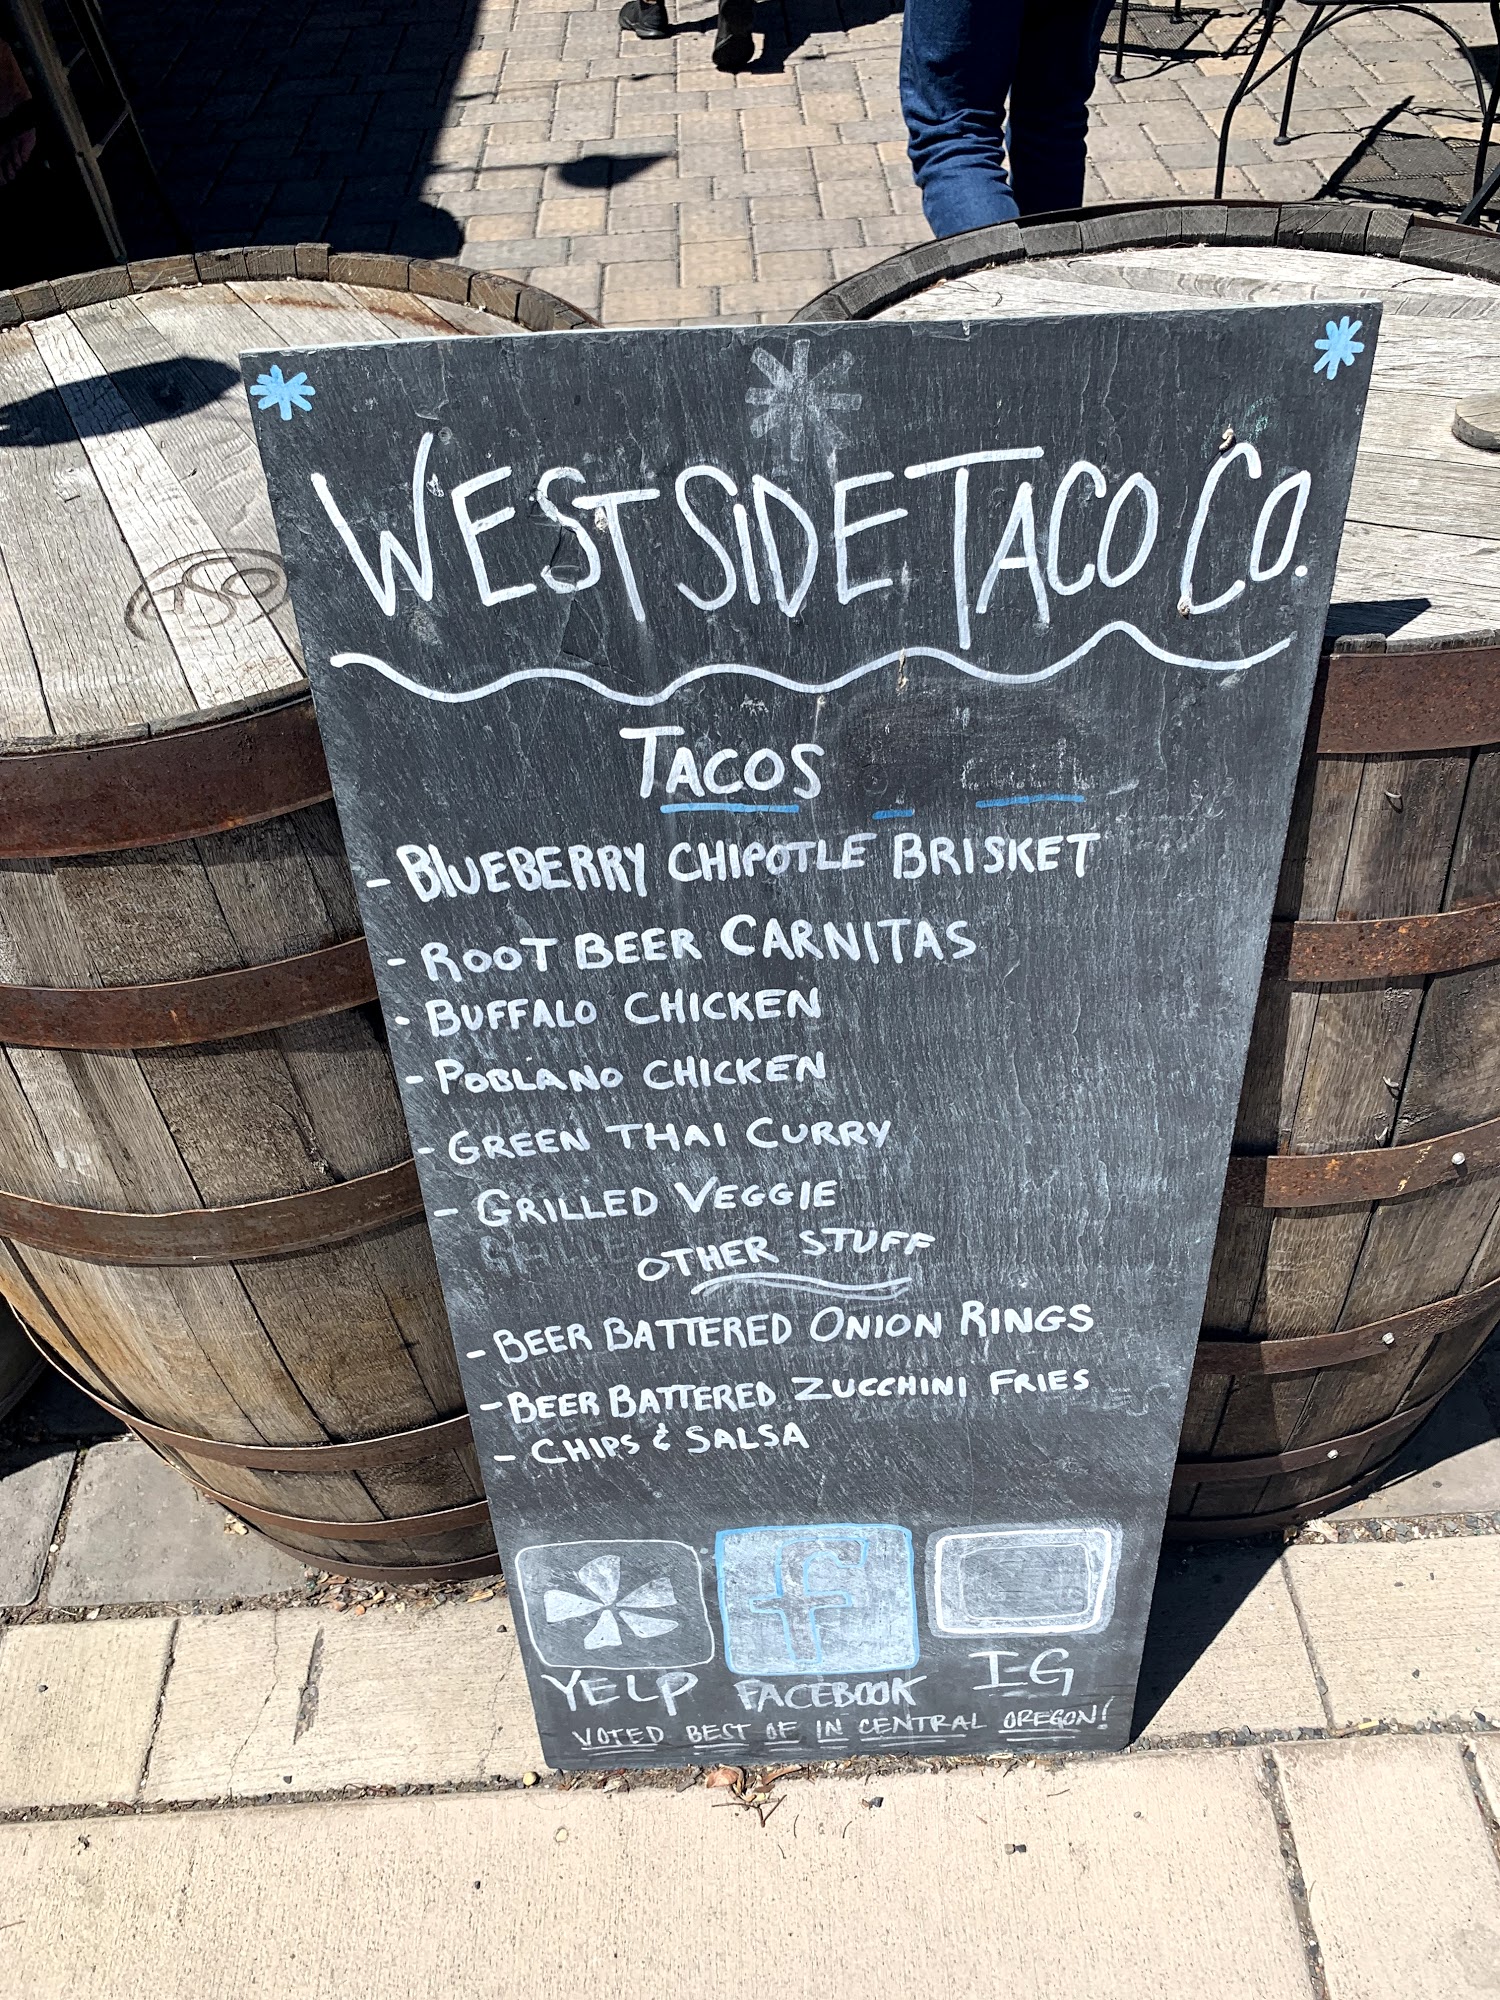 WEST SIDE TACO CO.
TACOS
- BLUEBERRY CHIPOTLE BRISKET
- ROOT BEER CARNITAS
- BUFFALO CHICKEN
- POBLANO CHICKEN
- GREEN THAI CURRY
- GRILLED VEGGIE
OTHER STUFF
- BEER BATTERED ONION RINGS
- BEER BATTERED ZUCCHINI FRIES
- CHIPS & SALSA
f
YELP FACEBOOK IG
VOTED BEST OF IN CENTRAL OREGON!